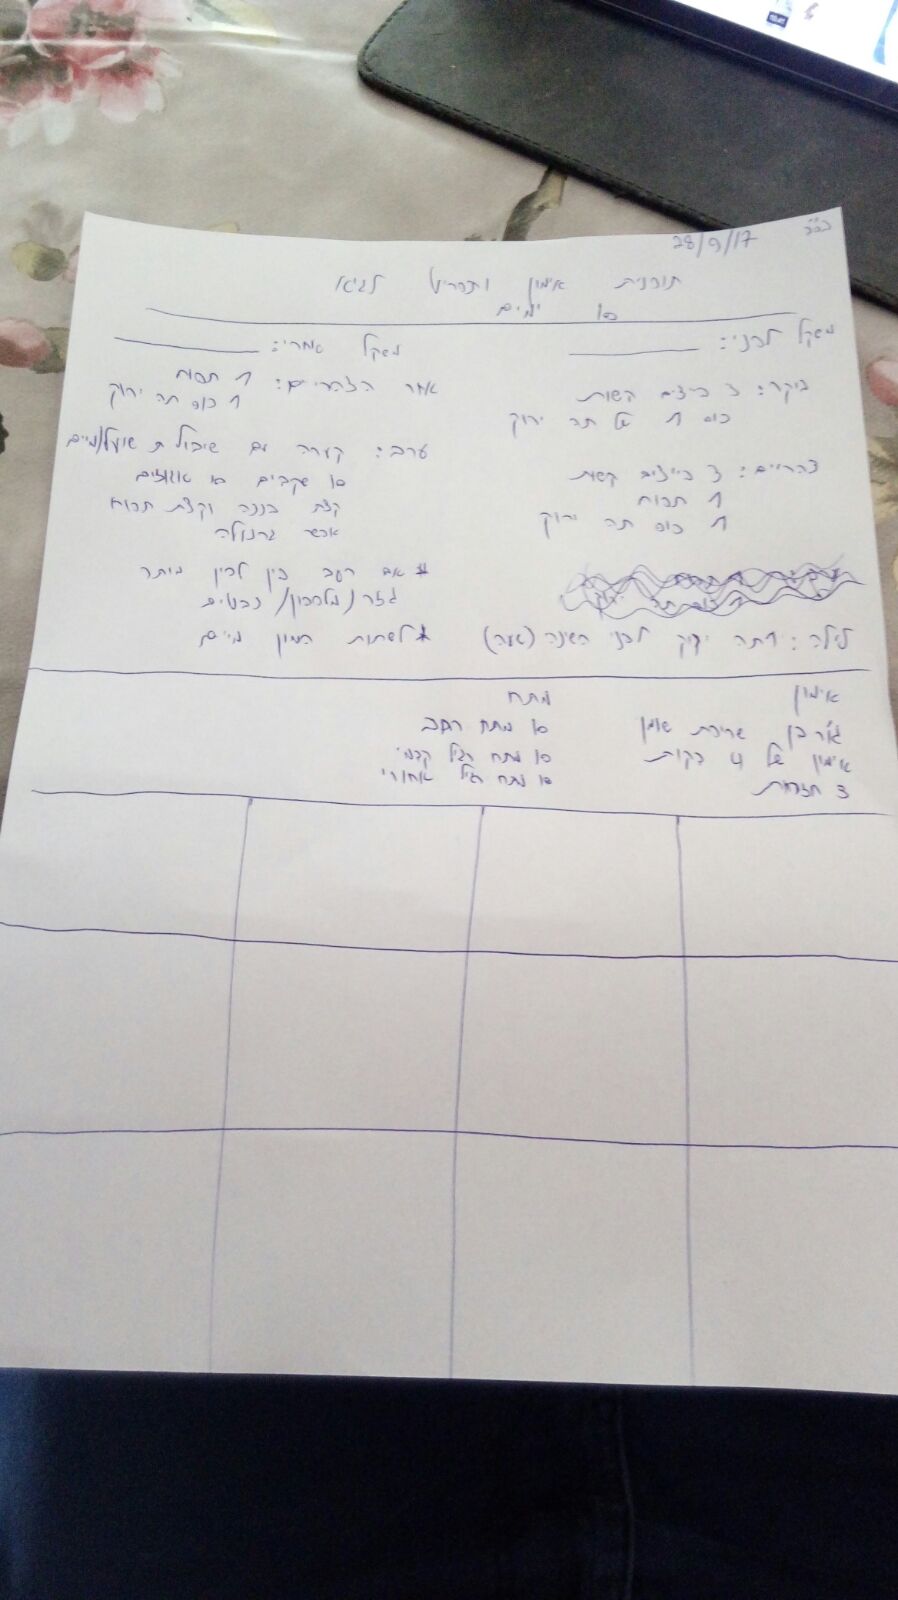 בס"ד
28/9/17
תוכנית אימון ותפריט לגיא
10 ימים
משקל לפני:
משקל אחרי:
בוקר: 3 ביצים קשות
כוס 1 של תה ירוק
צהריים: 3 ביצים קשות
1 תפוח
1 כוס תה ירוק
לילה: תה ירוק לפני השנה (שעה)
אחר הצהריים: 1 תפוח
1 כוס תה ירוק
ערב: קערה עם שיבולת שועל/מיים
10 שקדים 10 אגוזים
קצת בננה וקצת תפוח
אפשר גרנולה
* אם רעב בין לבין מותר
גזר/מלפפון/נבטים
* לשתות המון מיים
אימון
שריפת שומן
אימון של 4 דקות
3 חזרות
מתח
10 מתח רחב
10 מתח רגיל קדמי
10 מתח רגיל אחורי